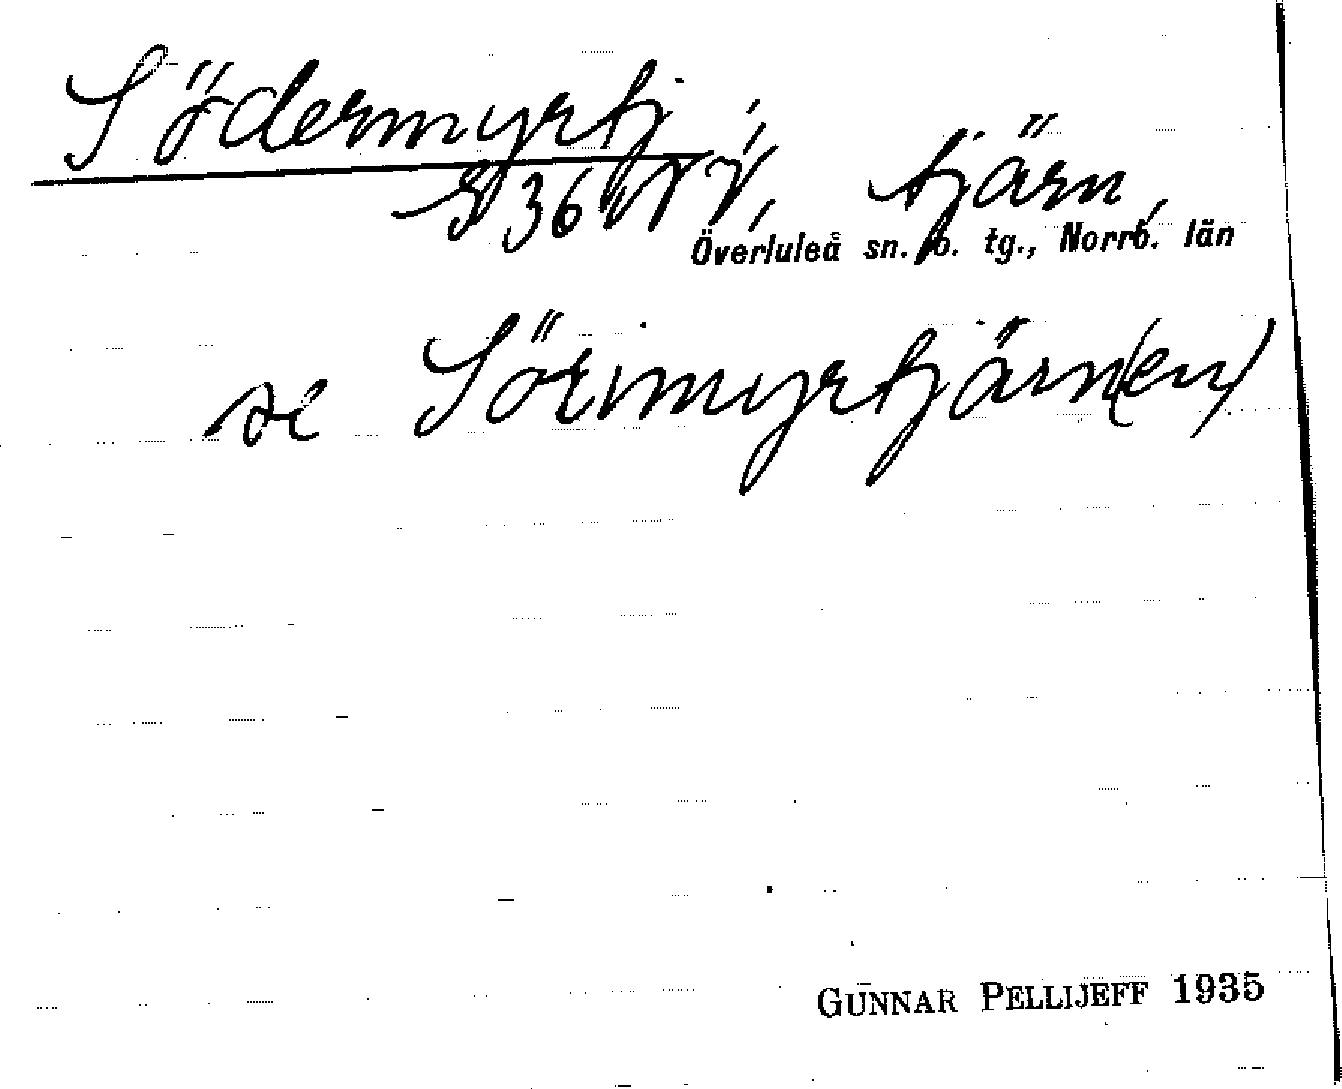 Södermyrtj
S 36 NV, tjärn,
Överluleå sn. o. tg., Norrb. län
se Sörimyrtjärn(en)
GUNNAR PELLIJEFF 1935